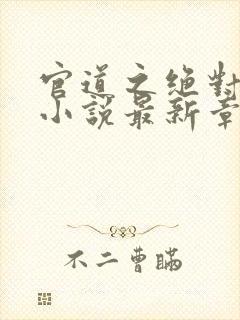 官道之绝對
小說最新章
不二曹瞞